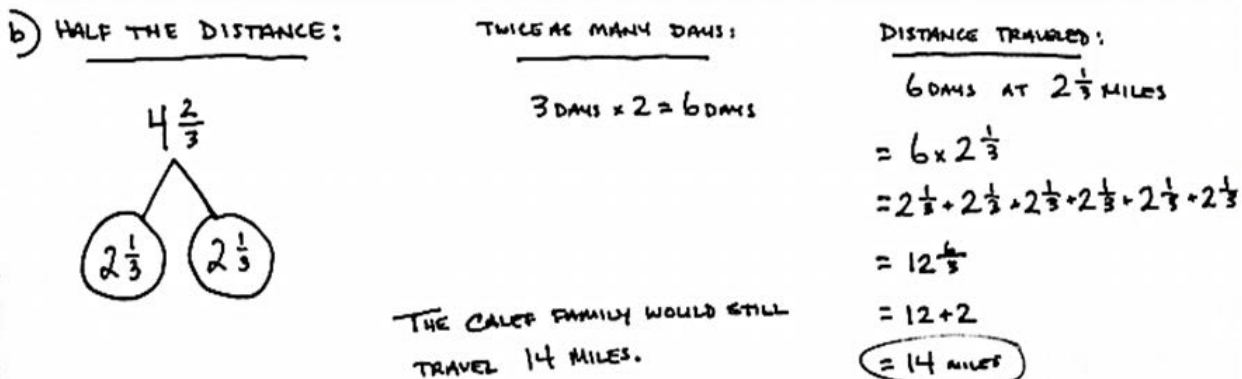 b) HALF THE DISTANCE:
4 2/3
2 1/3 2 1/3
TWICE AS MANY DAYS:
3 DAYS x 2 = 6 DAYS
THE CALEF FAMILY WOULD STILL
TRAVEL 14 MILES.
DISTANCE TRAVELED:
6 DAYS AT 2 1/3 MILES
= 6 x 2 1/3
= 2 1/3 + 2 1/3 + 2 1/3 + 2 1/3 + 2 1/3 + 2 1/3
= 12 6/3
= 12 + 2
= 14 MILES